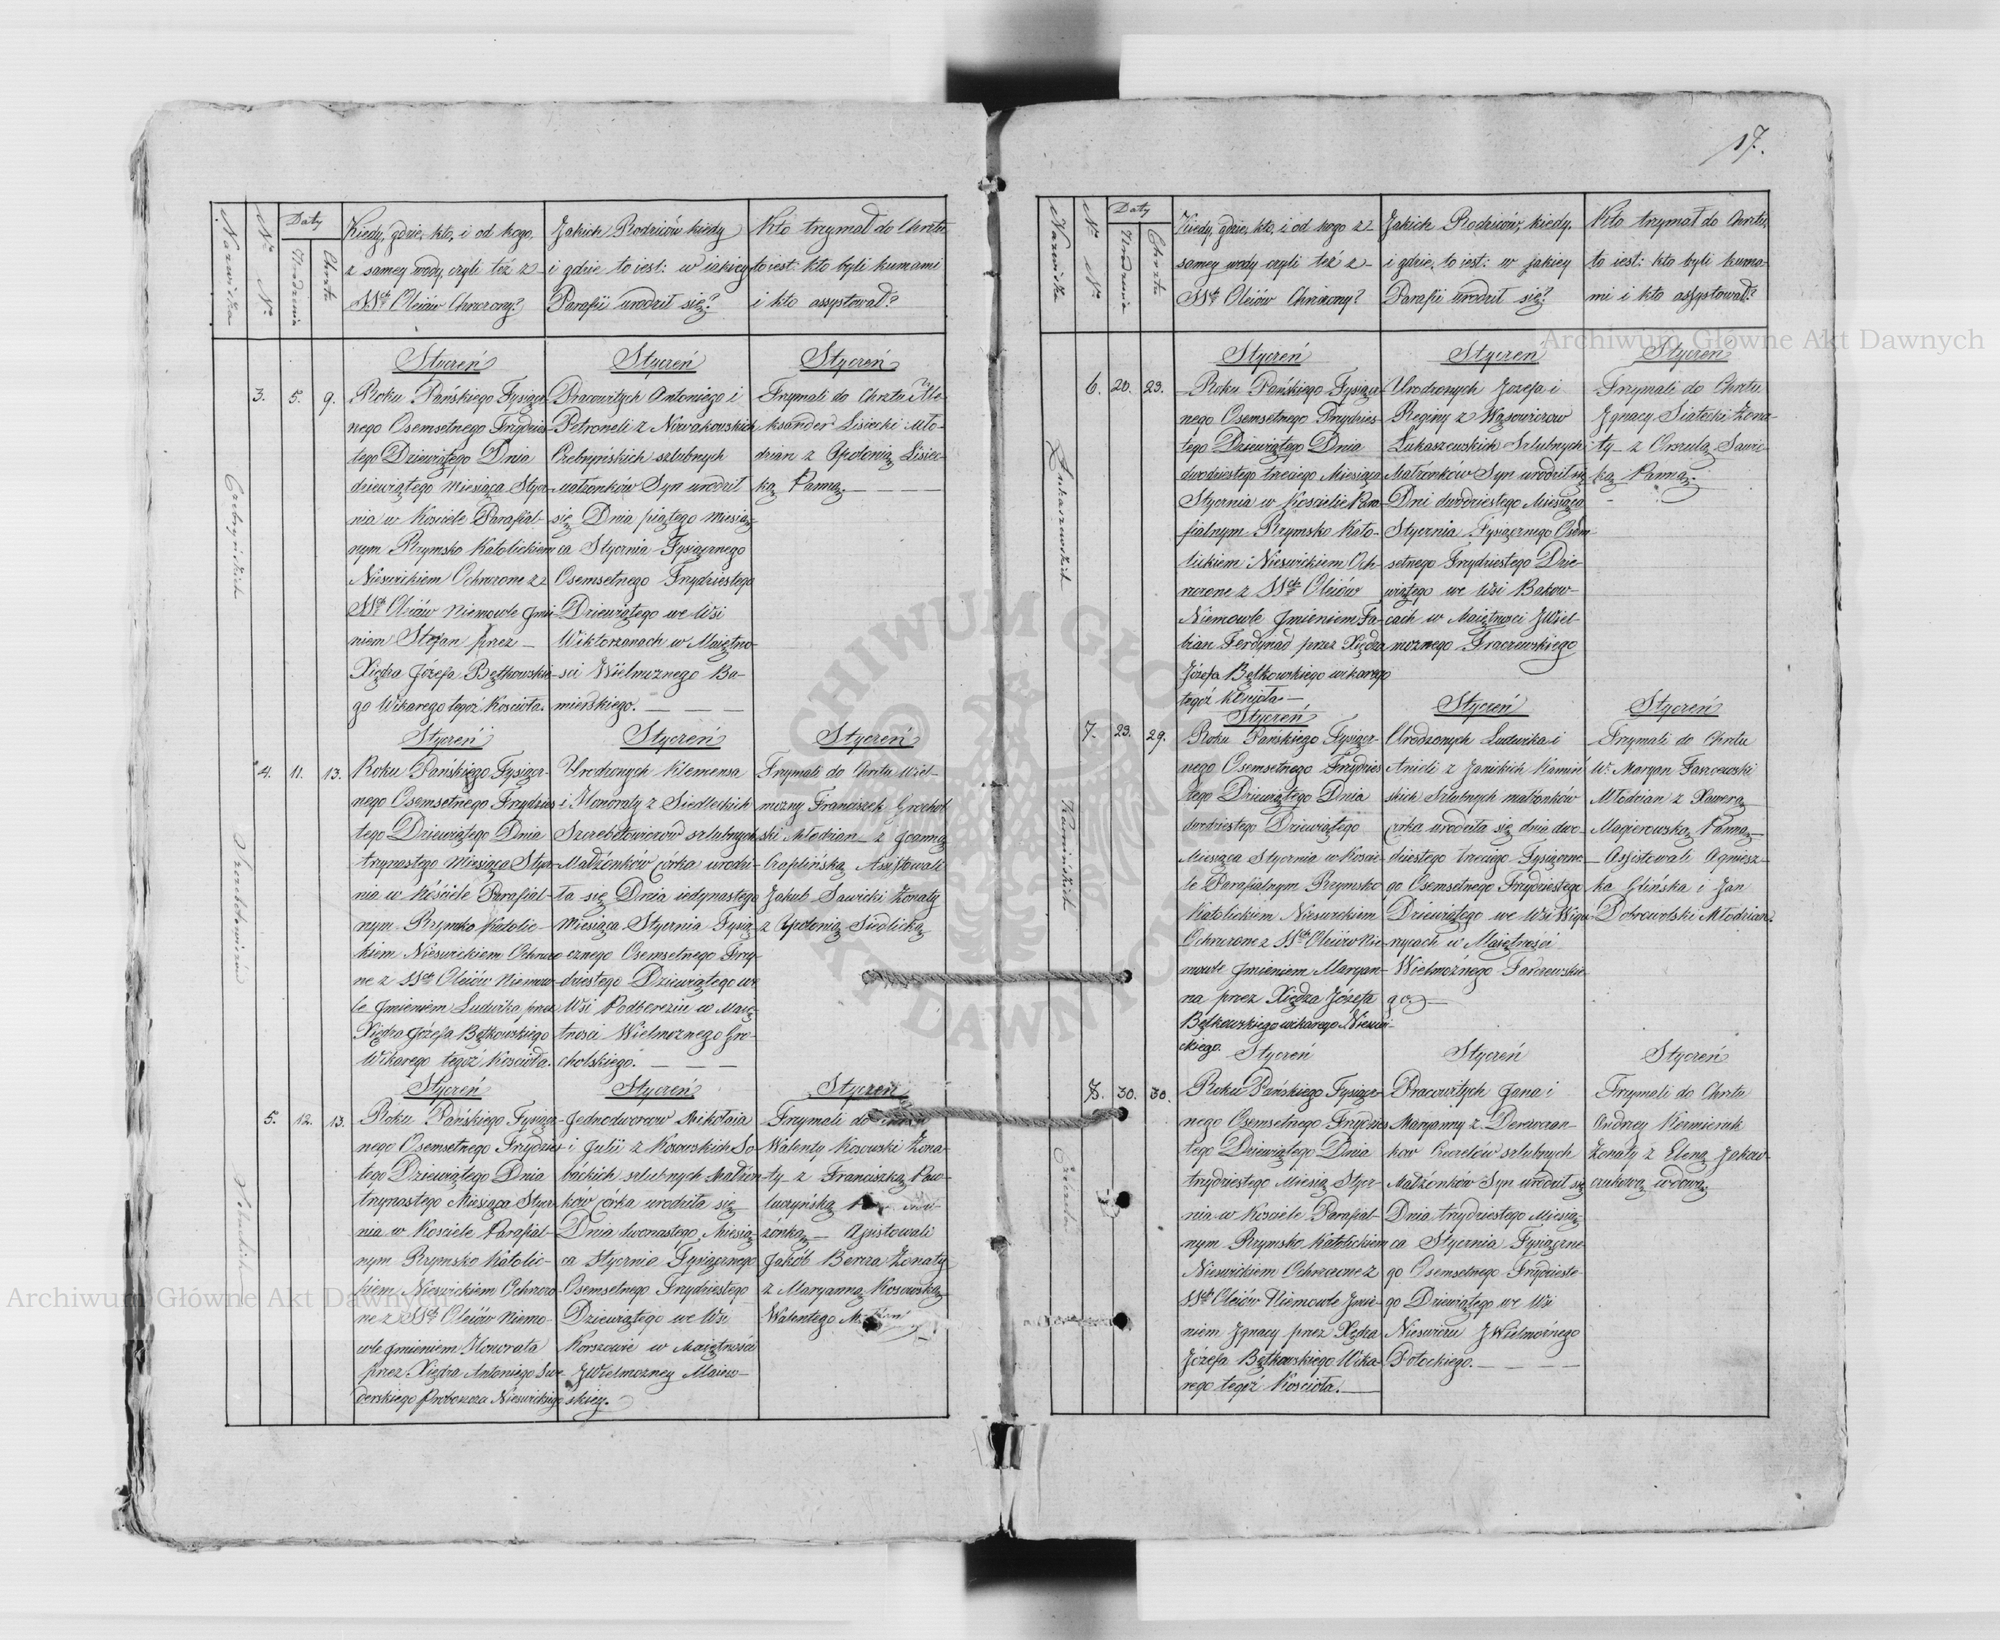 17.
Nazwiska
Nº Nº
Daty
Urodzenia
Chrztu
Kiedy, gdzie, kto, i od kogo,
z samey wody, czyli też z
SSch Oleiów Chrzczony?
Jakich Rodziców kiedy
i gdzie to iest: w iakiey
Parafii urodził się?
Kto trzymał do Chrztu
to iest: kto byli kumami
i kto assystował?
Styczeń
3. 5. 9.
Roku Pańskiego Tysiącz-
nego Osemsetnego Trzydzies-
tego Dziewiątego Dnia
dziewiątego Miesiąca Stycz-
nia w Kosciele Parafial-
nym Rzymsko Katolickiem
Nieswickiem Ochrzcone z
SSch Oleiów Niemowle Jmie-
niem Stefan przez
Xiędza Józefa Bętkowskie-
go Wikarego tegoż Koscioła.
Styczeń
Pracowitych Antoniego i
Petroneli z Nowakowskich
Czebryńskich szlubnych
Małżonków Syn urodził
się Dnia piątego Miesią-
ca Stycznia Tysiącznego
Osemsetnego Trzydziestego
Dziewiątego we Wsi
Wiktorzanach w Maiętno-
sci Wielmożnego Ba-
mierskiego.
Styczeń
Trzymali do Chrztu Ale-
ksander Lisiecki Mło-
dzian z Apolonią Lisiec-
ką Panną.
Styczeń
4. 11. 13.
Roku Pańskiego Tysiącz-
nego Osemsetnego Trzydzies-
tego Dziewiątego Dnia
trzynastego Miesiąca Stycz-
nia w Kościele Parafial-
nym Rzymsko Katolic-
kiem Nieswickiem Ochrzco-
ne z SSch Oleiów Niemow-
le Jmieniem Ludwika przez
Xiędza Józefa Bętkowskiego
Wikarego tegoż Koscioła.
Styczeń
Urodzonych Klemensa
i Honoraty z Siedleckich
Szczebetowiczów szlubnych
Madżonków córka urodzi-
ła się Dnia iedynastego
Miesiąca Stycznia Tysią-
cznego Osemsetnego Trzy-
dziestego Dziewiątego we
Wsi Podbereziu w Maię-
tnosci Wielmożnego Gro-
cholskiego.
Styczeń
Trzymali do Chrztu Wiel-
mozny Franciszek Grochol-
ski Młodzian z Joanną
Czaplińską Assistowali
Jakub Sawicki Żonaty
z Apolonią Siedlicką
Styczeń
5. 12. 13.
Roku Pańskiego Tysiącz-
nego Osemsetnego Trzydzies-
tego Dziewiątego Dnia
trzynastego Miesiąca Stycz-
nia w Kosciele Parafial-
nym Rzymsko Katolic-
kiem Nieswickiem Ochrzco-
ne z SSch Oleiów Niemo-
wle Jmieniem Honorata
przez Xiędza Antoniego Swe-
derskiego Proboszcza Nieswickiego
Styczeń
Jednodworcow Mikołaia
i Julii z Kosowskich So-
báckich szlubnych Małżon-
kow Córka urodziła się
Dnia dwonastego Miesią-
ca Stycznia Tysiącznego
Osemsetnego Trzydziestego
Dziewiątego we Wsi
Korszowie w Maiętnosci
JWielmozney Maiew-
skiey.
Styczeń
Trzymali do Chrztu
Walenty Kosowski Żona-
ty z Franciszką Paw-
luczyńską
żónką Asistowali
Jakób Bereza Żonaty
z Maryanną Kosowską
Walentego
Nazwiska
Nº Nº
Daty
Urodzenia
Chrztu
Kiedy, gdzie, kto, i od kogo z
samey wody czyli też z
SSch Oleiów Chrzczony?
Jakich Rodziców, kiedy,
i gdzie, to iest: w jakiey
Parafii urodził się?
Kto trzymał do Chrztu,
to iest: kto byli kuma-
mi i kto assystował?
Styczeń
6. 20. 23.
Łukaszewskich
Roku Pańskiego Tysiącz-
nego Osemsetnego Trzydzies-
tego Dziewiątego Dnia
dwodziestego trzeciego Miesiąca
Stycznia w Kosciele Para-
fialnym Rzymsko Kato-
lickiem Nieswickiem Och-
rzcone z SSch Oleiów
Niemowle Jmieniem Fa-
bian Ferdynad przez Xiędza
Józefa Bętkowskiego wikarego
tegoż Koscioła.
Styczeń
Urodzonych Jozefa i
Reginy z Wąsowiczow
Łukaszewskich Szlubnych
Małżonków Syn urodził się
Dni dwodziestego Miesiąca
Stycznia Tysiącznego Osem-
setnego Trzydziestego Dzie-
wiątego we Wsi Bakow-
cach w Maiętnosci JWiel-
moznego Traczewskiego
Styczeń
Trzymali do Chrztu
Jgnacy Siatecki Żona-
ty z Orszulą Sawic-
ką Panną.
Styczeń
7. 23. 29.
Kamińskich
Roku Pańskiego Tysiącz-
nego Osemsetnego Trzydzies-
tego Dziewiątego Dnia
dwodziestego Dziewiątego
Miesiąca Stycznia w Koscie-
le Parafialnym Rzymsko
Katolickiem Nieswickiem
Ochrzcone z SSch Oleiów Nie-
mowle Jmieniem Maryan-
na przez Xiędza Józefa
Bętkowskiego wikarego Nieswi-
ckiego.
Styczeń
Urodzonych Ludwika i
Anieli z Janickich Kamiń-
skich Szlubnych małżonków
Córka urodziła się dnia dwo-
dziestego trzeciego Tysiączne-
go Osemsetnego Trzydziestego
Dziewiątego we Wsi Wigu-
nycach w Maiętnosci
Wielmożnego Faszczewskie-
go
Styczeń
Trzymali do Chrztu
W. Maryan Faszcewski
Młodzian z Xawerą
Magierowską Panną
Assistowali Agniesz-
ka Glińska i Jan
Dobrowolski Młodzian.
Styczeń
8. 30. 30.
Roku Pańskiego Tysiącz-
nego Osemsetnego Trzydzies-
tego Dziewiątego Dnia
trzydziestego Miesią. Stycz-
nia w Kosciele Parafial-
nym Rzymsko Katolickiem
Nieswickiem Ochrzczone z
SSch Oleiów Niemowle Jmie-
niem Jgnacy przez Xiędza
Józefa Bętkowskiego Wika-
rego tegoż Kościoła.
Styczeń
Pracowitych Jana i
Maryanny z Derewian-
kow Czeczelów szlubnych
Małżónków Syn urodził się
Dnia trzydziestego Miesią-
ca Stycznia Tysiączne-
go Osemsetnego Trzydzieste-
go Dziewiątego we Wsi
Nieswiczu JWielmożnego
Potockiego.
Styczeń
Trzymali do Chrztu
Andrzey Kozmierczuk
Żonaty z Eleną Jakow-
czukową wdową.
Archiwum Główne Akt Dawnych
Archiwum Główne Akt Dawnych